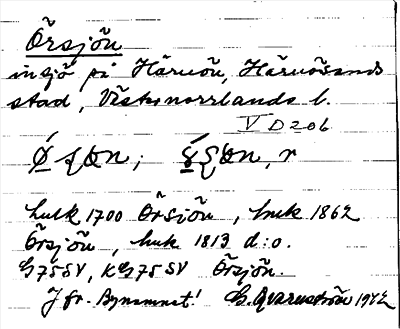 Örsjön
insjö på Härnön, Härnösands
stad, Västernorrlands l.
V D20b
hulk 1700 Örsiön, huk 1862
Örsjön, huk 1813 d:o.
G75SV, KG75SV Örsjön.
Jfr. Bynamnet! G. Qvarnström 1972